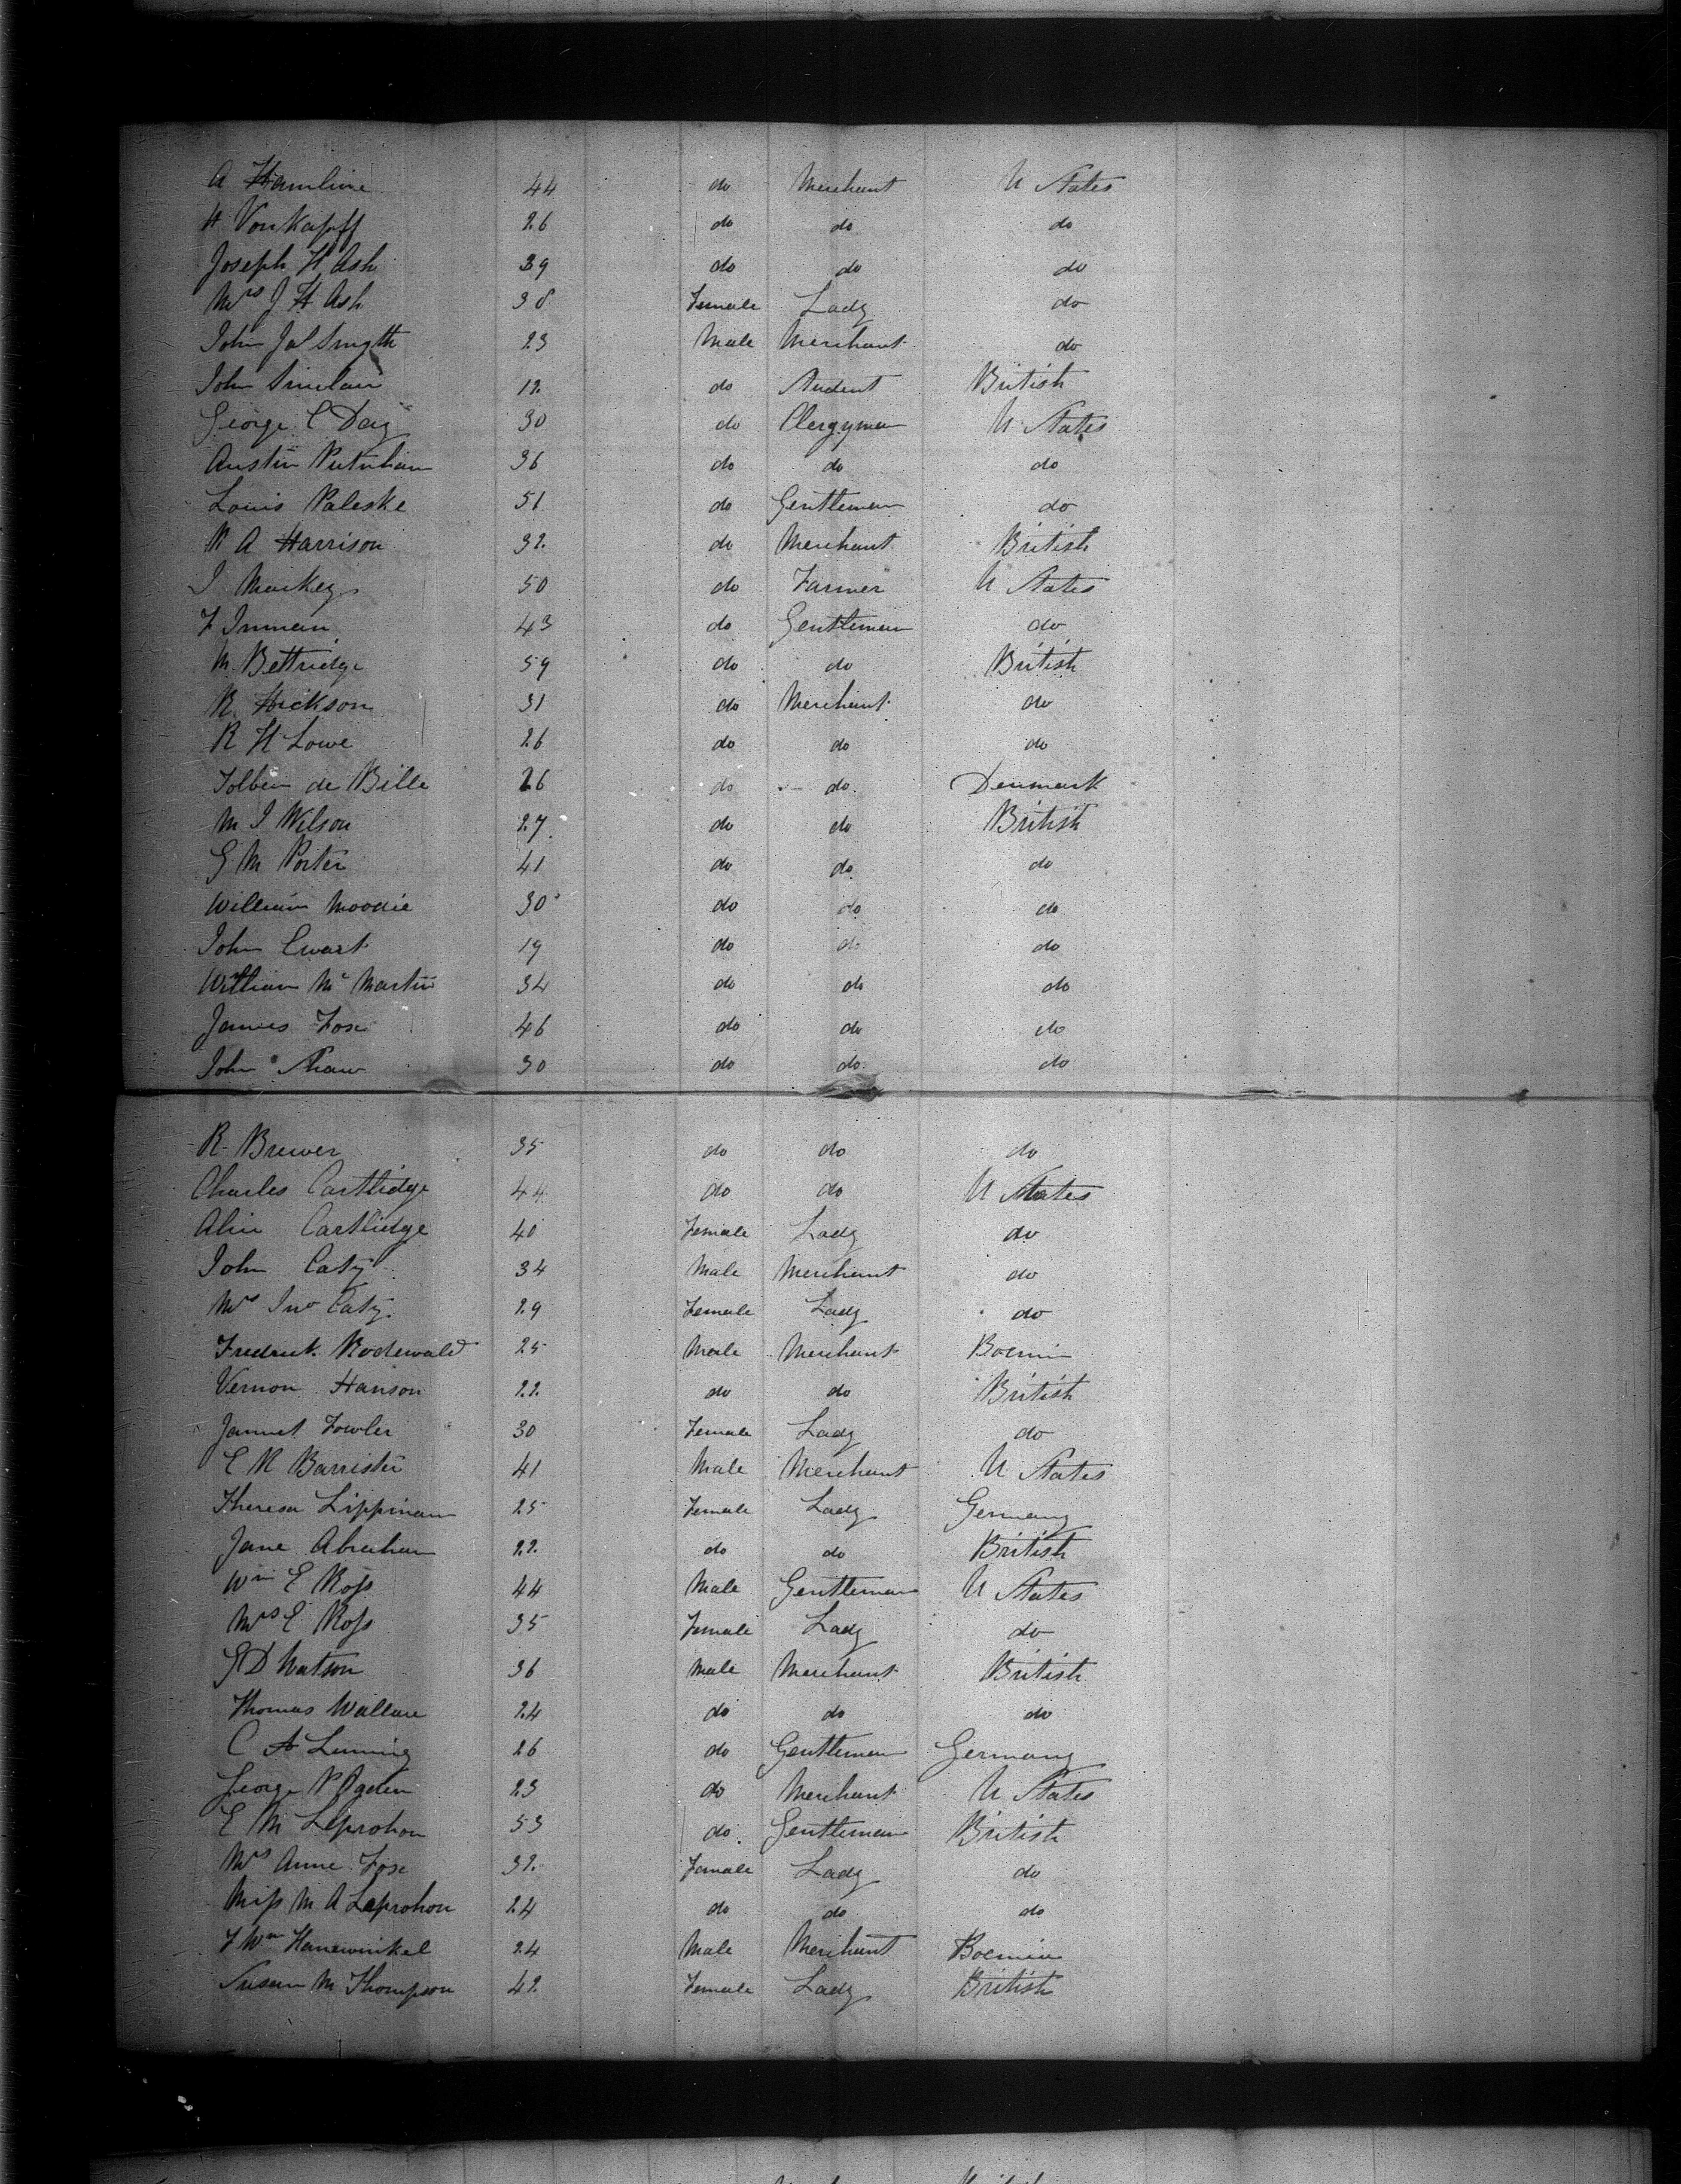 A Hamline 44 do Merchant U States
H Vonkapff 26 do do do
Joseph H Ash 39 do do do
Mrs J H Ash 38 Female Lady do
John Jas Smyth 23 Male Merchant do
John Sinclair 12 do Student British
George E Day 30 do Clergyman U States
Austin Putnham 36 do do do
Louis Paleske 51 do Gentleman do
W A Harrison 32 do Merchant British
J Markey 50 do Farmer U States
F Inman 43 do Gentleman do
M Bettridge 59 do do British
R Hickson 31 do Merchant do
R H Lowe 26 do do do
de Bille 26 do do Denmark
M I Wilson 27 do do British
G M Porter 41 do do do
William Moodie 30 do do do
John Ewart 19 do do do
William Mc Martin 34 do do do
James Fox 46 do do do
John Shaw 30 do do do
R Brewer 35 do do do
Charles Cartlidge 44 do do U States
Alice Cartlidge 40 Female Lady do
John Caty 34 Male Merchant do
Mrs Jno Caty 29 Female Lady do
Frederick Rodewald 25 Male Merchant
Vernon Hanson 22 do do British
Jannet Fowler 30 Female Lady do
E R Barrister 41 Male Merchant U States
Theresa Lippman 25 Female Lady Germany
Jane Abraham 22 do do British
Wm E Ross 44 Male Gentleman U States
Mrs E Ross 35 Female Lady do
G D Watson 36 Male Merchant British
Thomas Wallace 24 do do do
C A Luning 26 do Gentleman Germany
George P Ogden 23 do Merchant U States
E M Leprohon 53 do Gentleman British
Mrs Anne Fox 32 Female Lady do
Miss M A Leprohon 24 do do do
F Wm Hanewinkel 24 Male Merchant
Susan M Thompson 42 Female Lady British